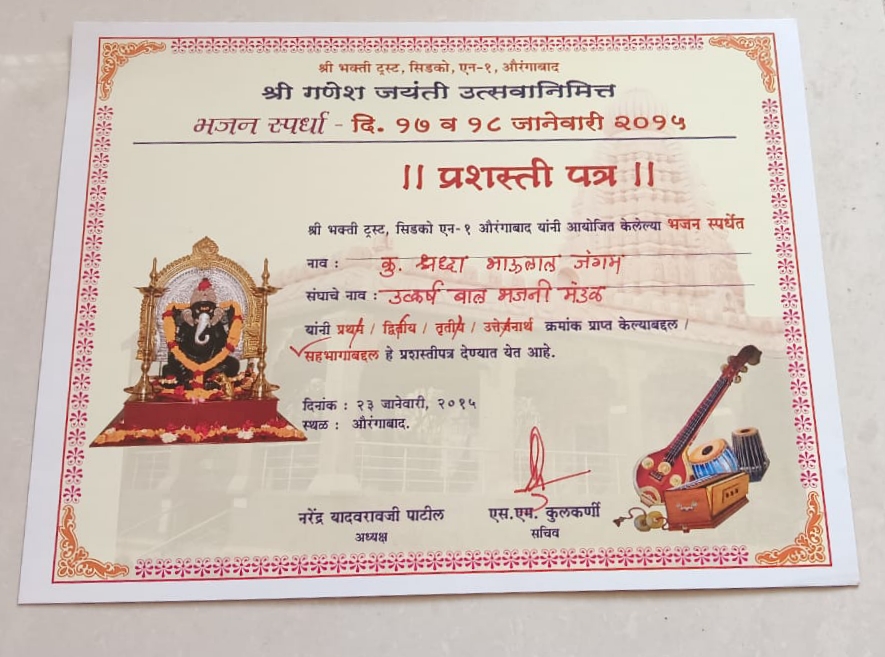 श्री भक्ती ट्रस्ट, सिडको, एन-१, औरंगाबाद
श्री गणेश जयंती उत्सवानिमित्त
भजन स्पर्धा - दि. १७ व १८ जानेवारी २०१५
|| प्रशस्ती पत्र ||
श्री भक्ती ट्रस्ट, सिडको एन-१ औरंगाबाद यांनी आयोजित केलेल्या भजन स्पर्धेत
नाव : कु. श्रध्दा भाऊलाल जंगम
संघाचे नाव : उत्कर्ष बाल भजनी मंडळ
यांनी प्रथम / द्वितीय / तृतीय / उत्तेजनार्थ क्रमांक प्राप्त केल्याबद्दल /
सहभागाबद्दल हे प्रशस्तीपत्र देण्यात येत आहे.
दिनांक : २३ जानेवारी, २०१५
स्थळ : औरंगाबाद.
नरेंद्र यादवरावजी पाटील एस.एम. कुलकर्णी
अध्यक्ष सचिव